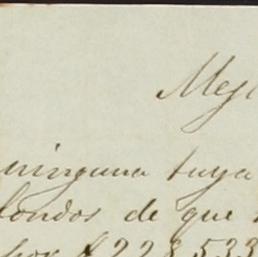 Mej
ninguna tuya
fondos de que
por $228,533